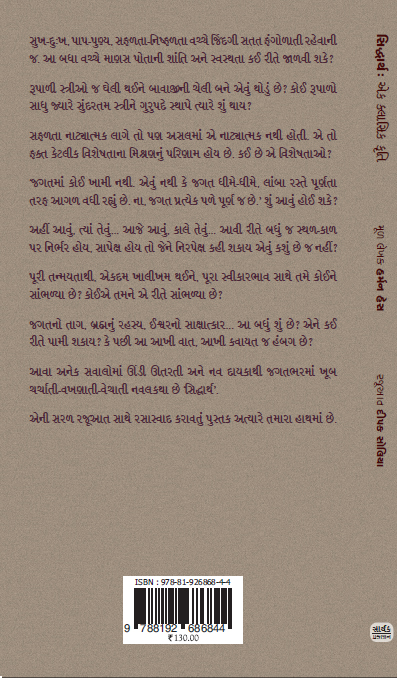 સુખ-દુઃખ, પાપ-પુણ્ય, સફળતા-નિષ્ફળતા વચ્ચે જિંદગી સતત ફંગોળાતી રહેવાની
જ. આ બધા વચ્ચે માણસ પોતાની શાંતિ અને સ્વસ્થતા કઈ રીતે જાળવી શકે?
રૂપાળી સ્ત્રીઓ જ ઘેલી થઈને બાવાજીની ચેલી બને એવું થોડું છે? કોઈ રૂપાળો
સાધુ જ્યારે સુંદરતમ સ્ત્રીને ગુરુપદે સ્થાપે ત્યારે શું થાય?
સફળતા નાટ્યાત્મક લાગે તો પણ અસલમાં એ નાટ્યાત્મક નથી હોતી. એ તો
ફક્ત કેટલીક વિશેષતાના મિશ્રણનું પરિણામ હોય છે. કઈ છે એ વિશેષતાઓ?
'જગતમાં કોઈ ખામી નથી. એવું નથી કે જગત ધીમે-ધીમે, લાંબા રસ્તે પૂર્ણતા
તરફ આગળ વધી રહ્યું છે. ના, જગત પ્રત્યેક પળે પૂર્ણ જ છે.' શું આવું હોઈ શકે?
અહીં આવું, ત્યાં તેવું... આજે આવું, કાલે તેવું... આવી રીતે બધું જ સ્થળ-કાળ
પર નિર્ભર હોય, સાપેક્ષ હોય તો જેને નિરપેક્ષ કહી શકાય એવું કશું છે જ નહીં?
પૂરી તન્મયતાથી, એકદમ ખાલીખમ થઈને, પૂરા સ્વીકારભાવ સાથે તમે કોઈને
સાંભળ્યા છે? કોઈએ તમને એ રીતે સાંભળ્યા છે?
જગતનો તાગ, બ્રહ્મનું રહસ્ય, ઈશ્વરનો સાક્ષાત્કાર... આ બધું શું છે? એને કઈ
રીતે પામી શકાય? કે પછી આ આખી વાત, આખી કવાયત જ હંબગ છે?
આવા અનેક સવાલોમાં ઊંડી ઊતરતી અને નવ દાયકાથી જગતભરમાં ખૂબ
ચર્ચાતી-વખણાતી-વેચાતી નવલકથા છે 'સિદ્ધાર્થ'.
એની સરળ રજૂઆત સાથે રસાસ્વાદ કરાવતું પુસ્તક અત્યારે તમારા હાથમાં છે.
ISBN : 978-81-926868-4-4
9 788192 686844
₹ 130.00
સિદ્ધાર્થ : એક ક્લાસિક કૃતિ
મૂળ લેખક હર્મન હેસ
રજૂઆત દીપક સોલિયા
સાર્થક
પ્રકાશન